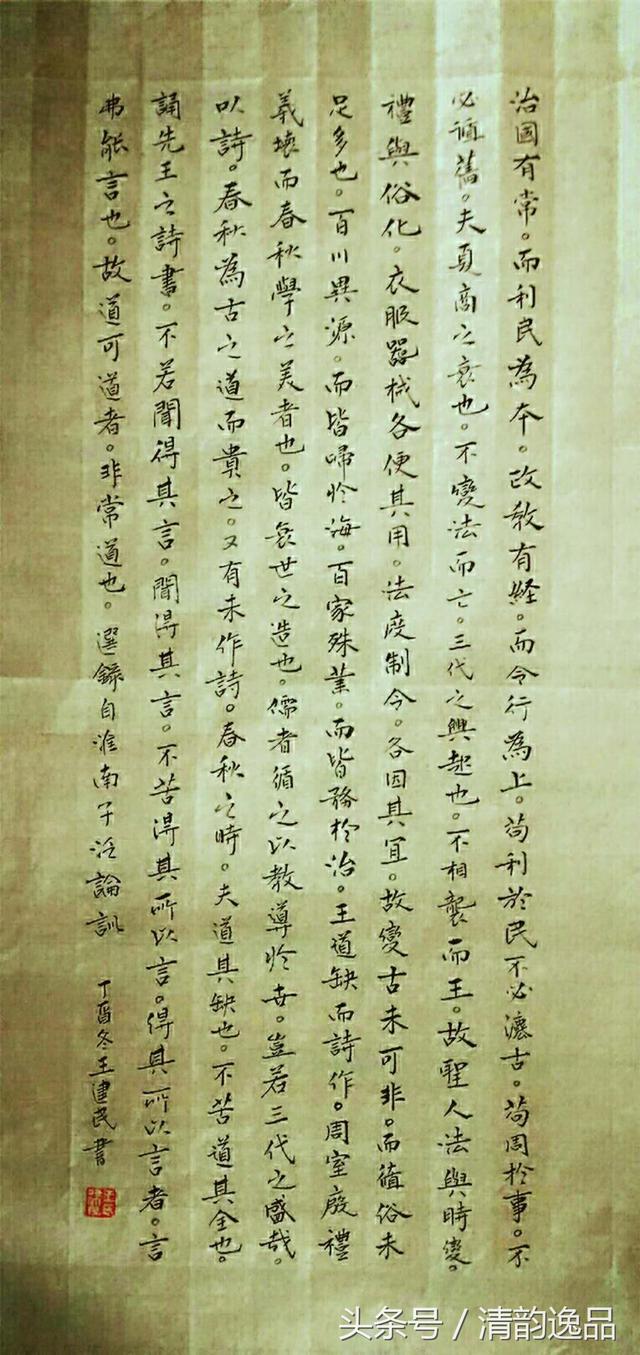 治國有常。而利民為本。政敎有經。而令行為上。茍利於民不必灋古。茍周於事。不
必循舊。夫夏商之衰也。不變法而亡。三代之興起也。不相襲而王。故聖人法與時變。
禮與俗化。衣服器械各便其用。法度制令。各因其宜。故變古未可非。而循俗未
足多也。百川異源。而皆歸於海。百家殊業。而皆務於治。王道缺而詩作。周室廢禮
義壞而春秋學之美者也。皆衰世之造也。儒者循之以教導於世。豈若三代之盛哉。
以詩。春秋為古之道而貴之。又有未作詩。春秋之時。夫道其缺也。不若道其全也。
誦先王之詩書。不若聞得其言。聞得其言。不若得其所以言。得其所以言者。言
弗能言也。故道可道者。非常道也。選錄自淮南子泛論訓
丁酉冬王建民書
头条号 / 清韵逸品